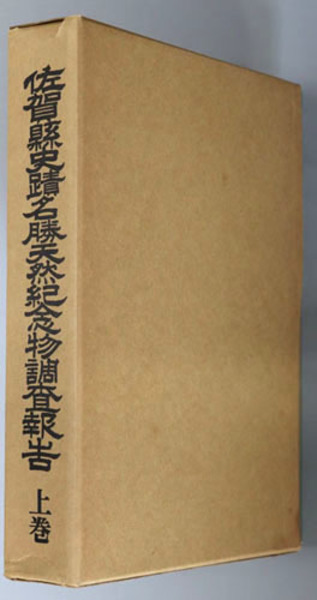 佐賀縣史蹟名勝天然紀念物調査報告
上巻